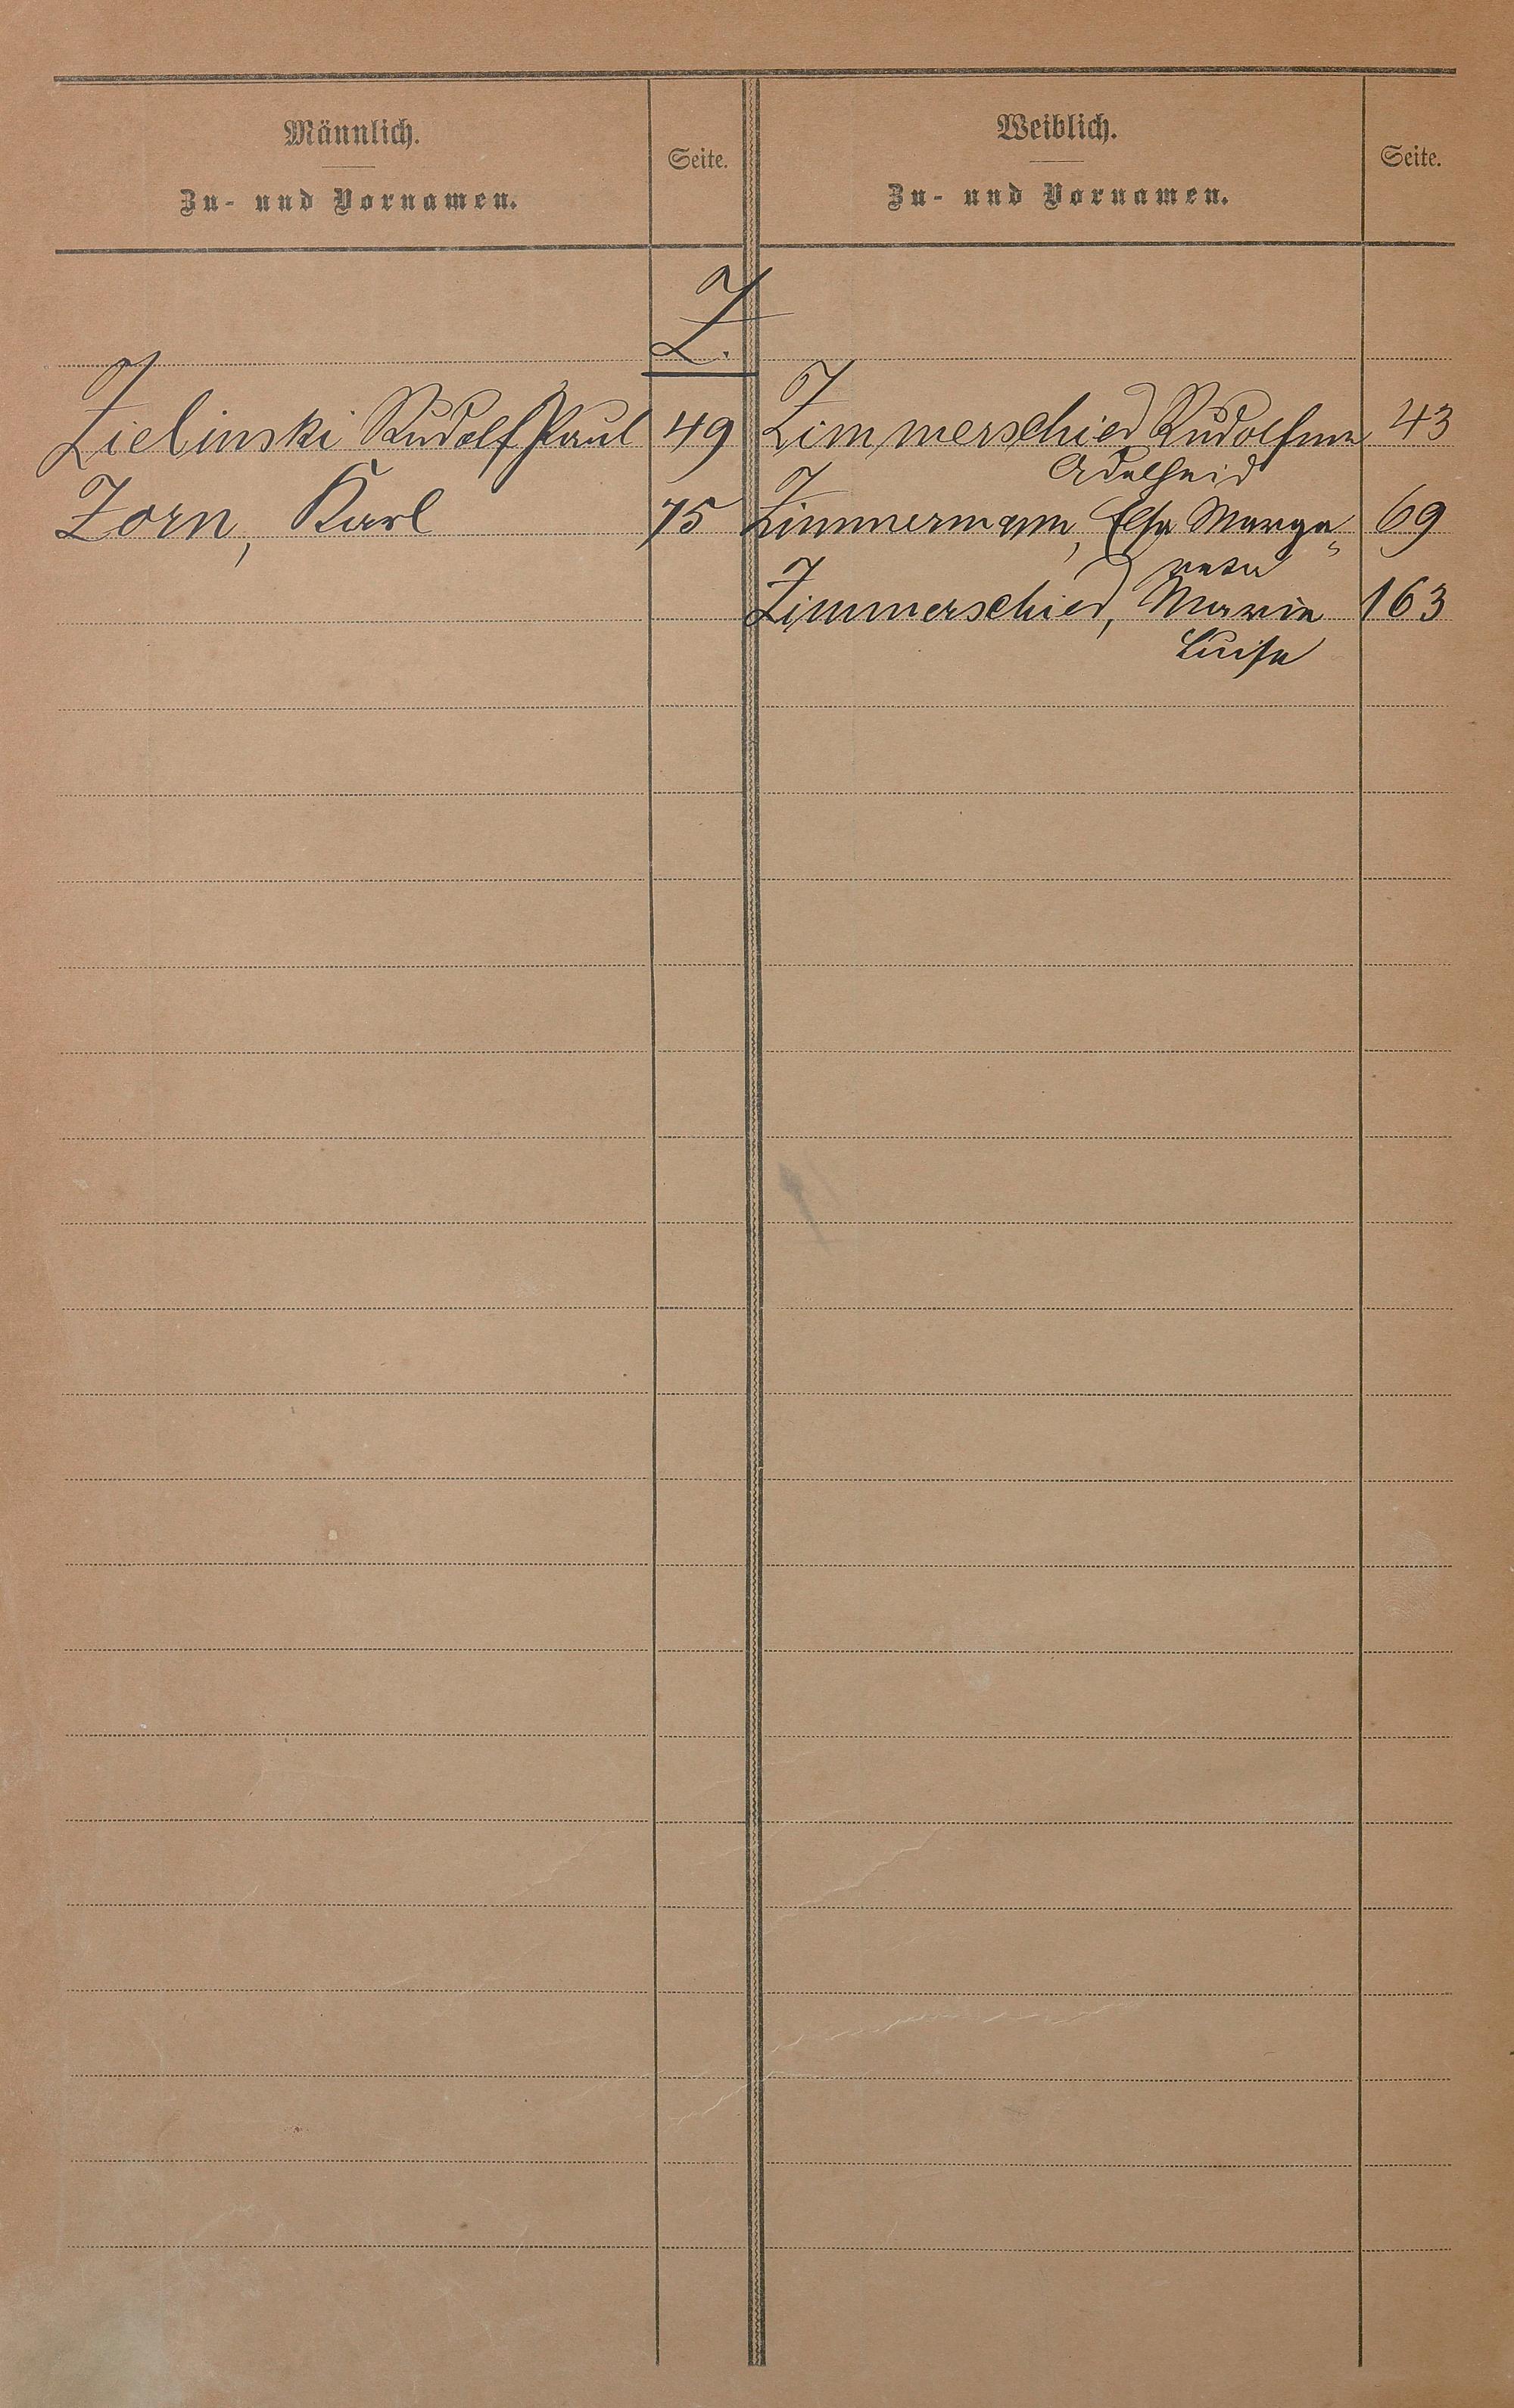 Männlich.
Zu- und Vornamen.
Seite.
Weiblich.
Zu- und Vornamen.
Seite.
Z.
Zielinski Rudolf Paul 49
Zorn, Karl 75
Zimmerschied Rudolfine 43
Adelheid
Zimmermann, Elsa Marga„ 69
reta
Zimmerschied, Maria 163
Luise